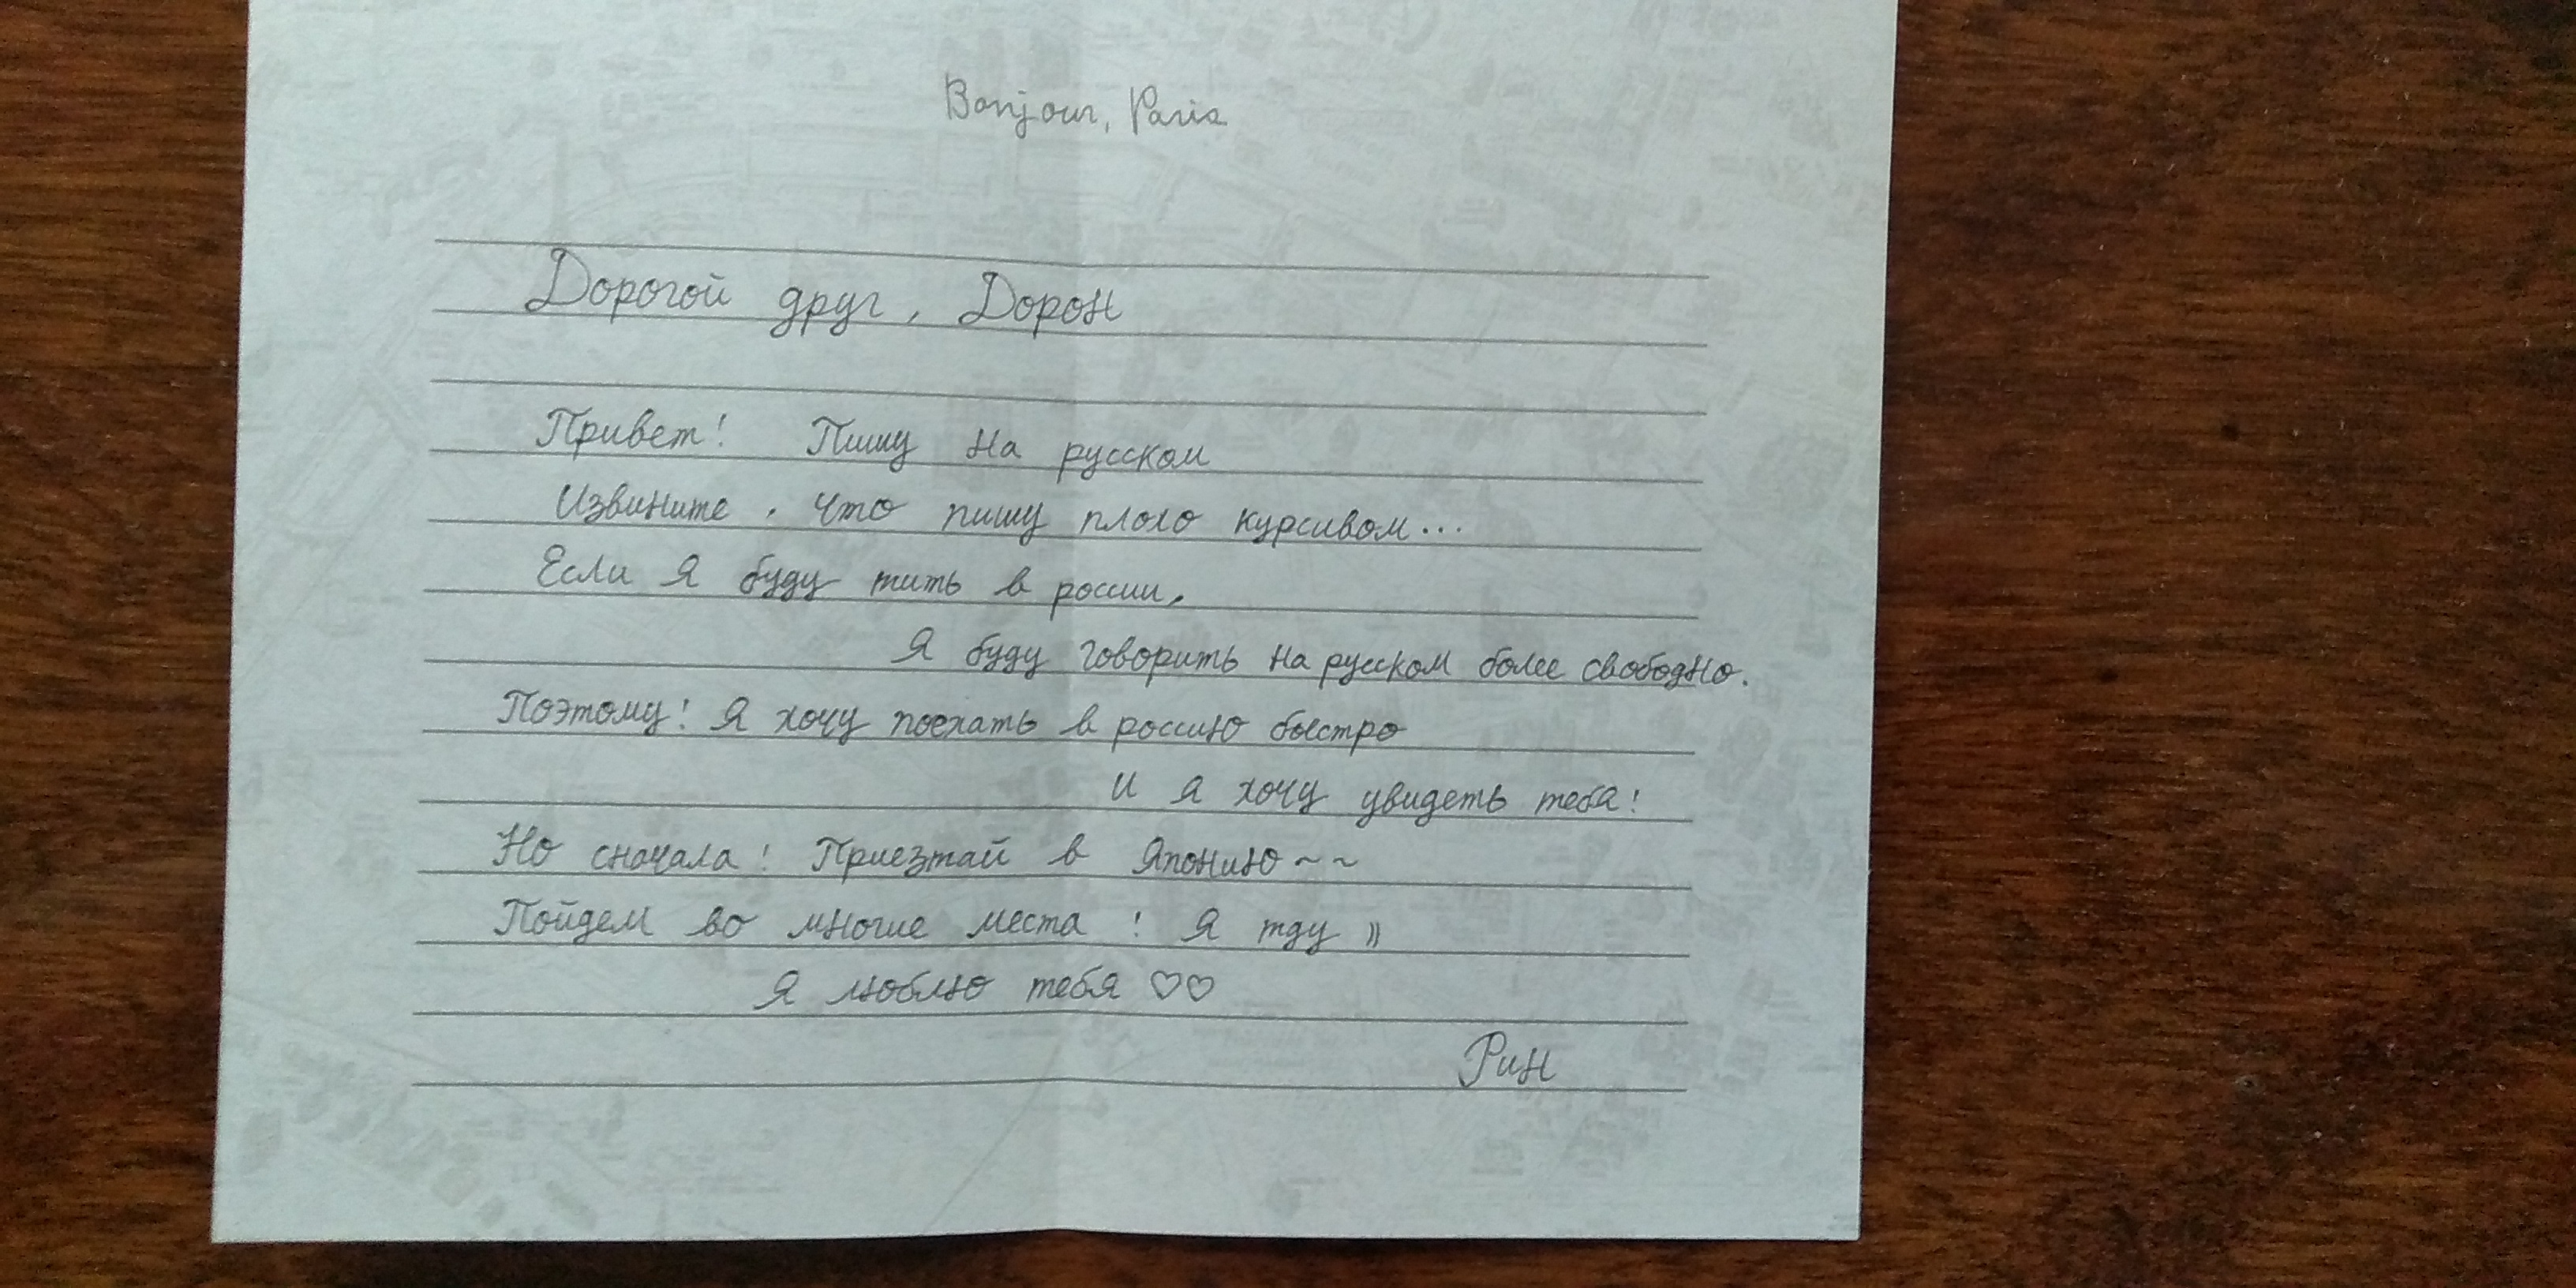 Bonjour, Paris
Дорогой друг, Дорон
Привет! Пишу на русском
Извините, что пишу плохо курсивом...
Если я буду тить в россии,
Я буду говорить на русском более свободно.
Поэтому! Я хочу поехать в россию быстро
И я хочу увидеть тебя!
Но сначала! Приезтай в Японию~~
Пойдем во многие места! Я тду ))
Я люблю тебя ♡♡
Рин